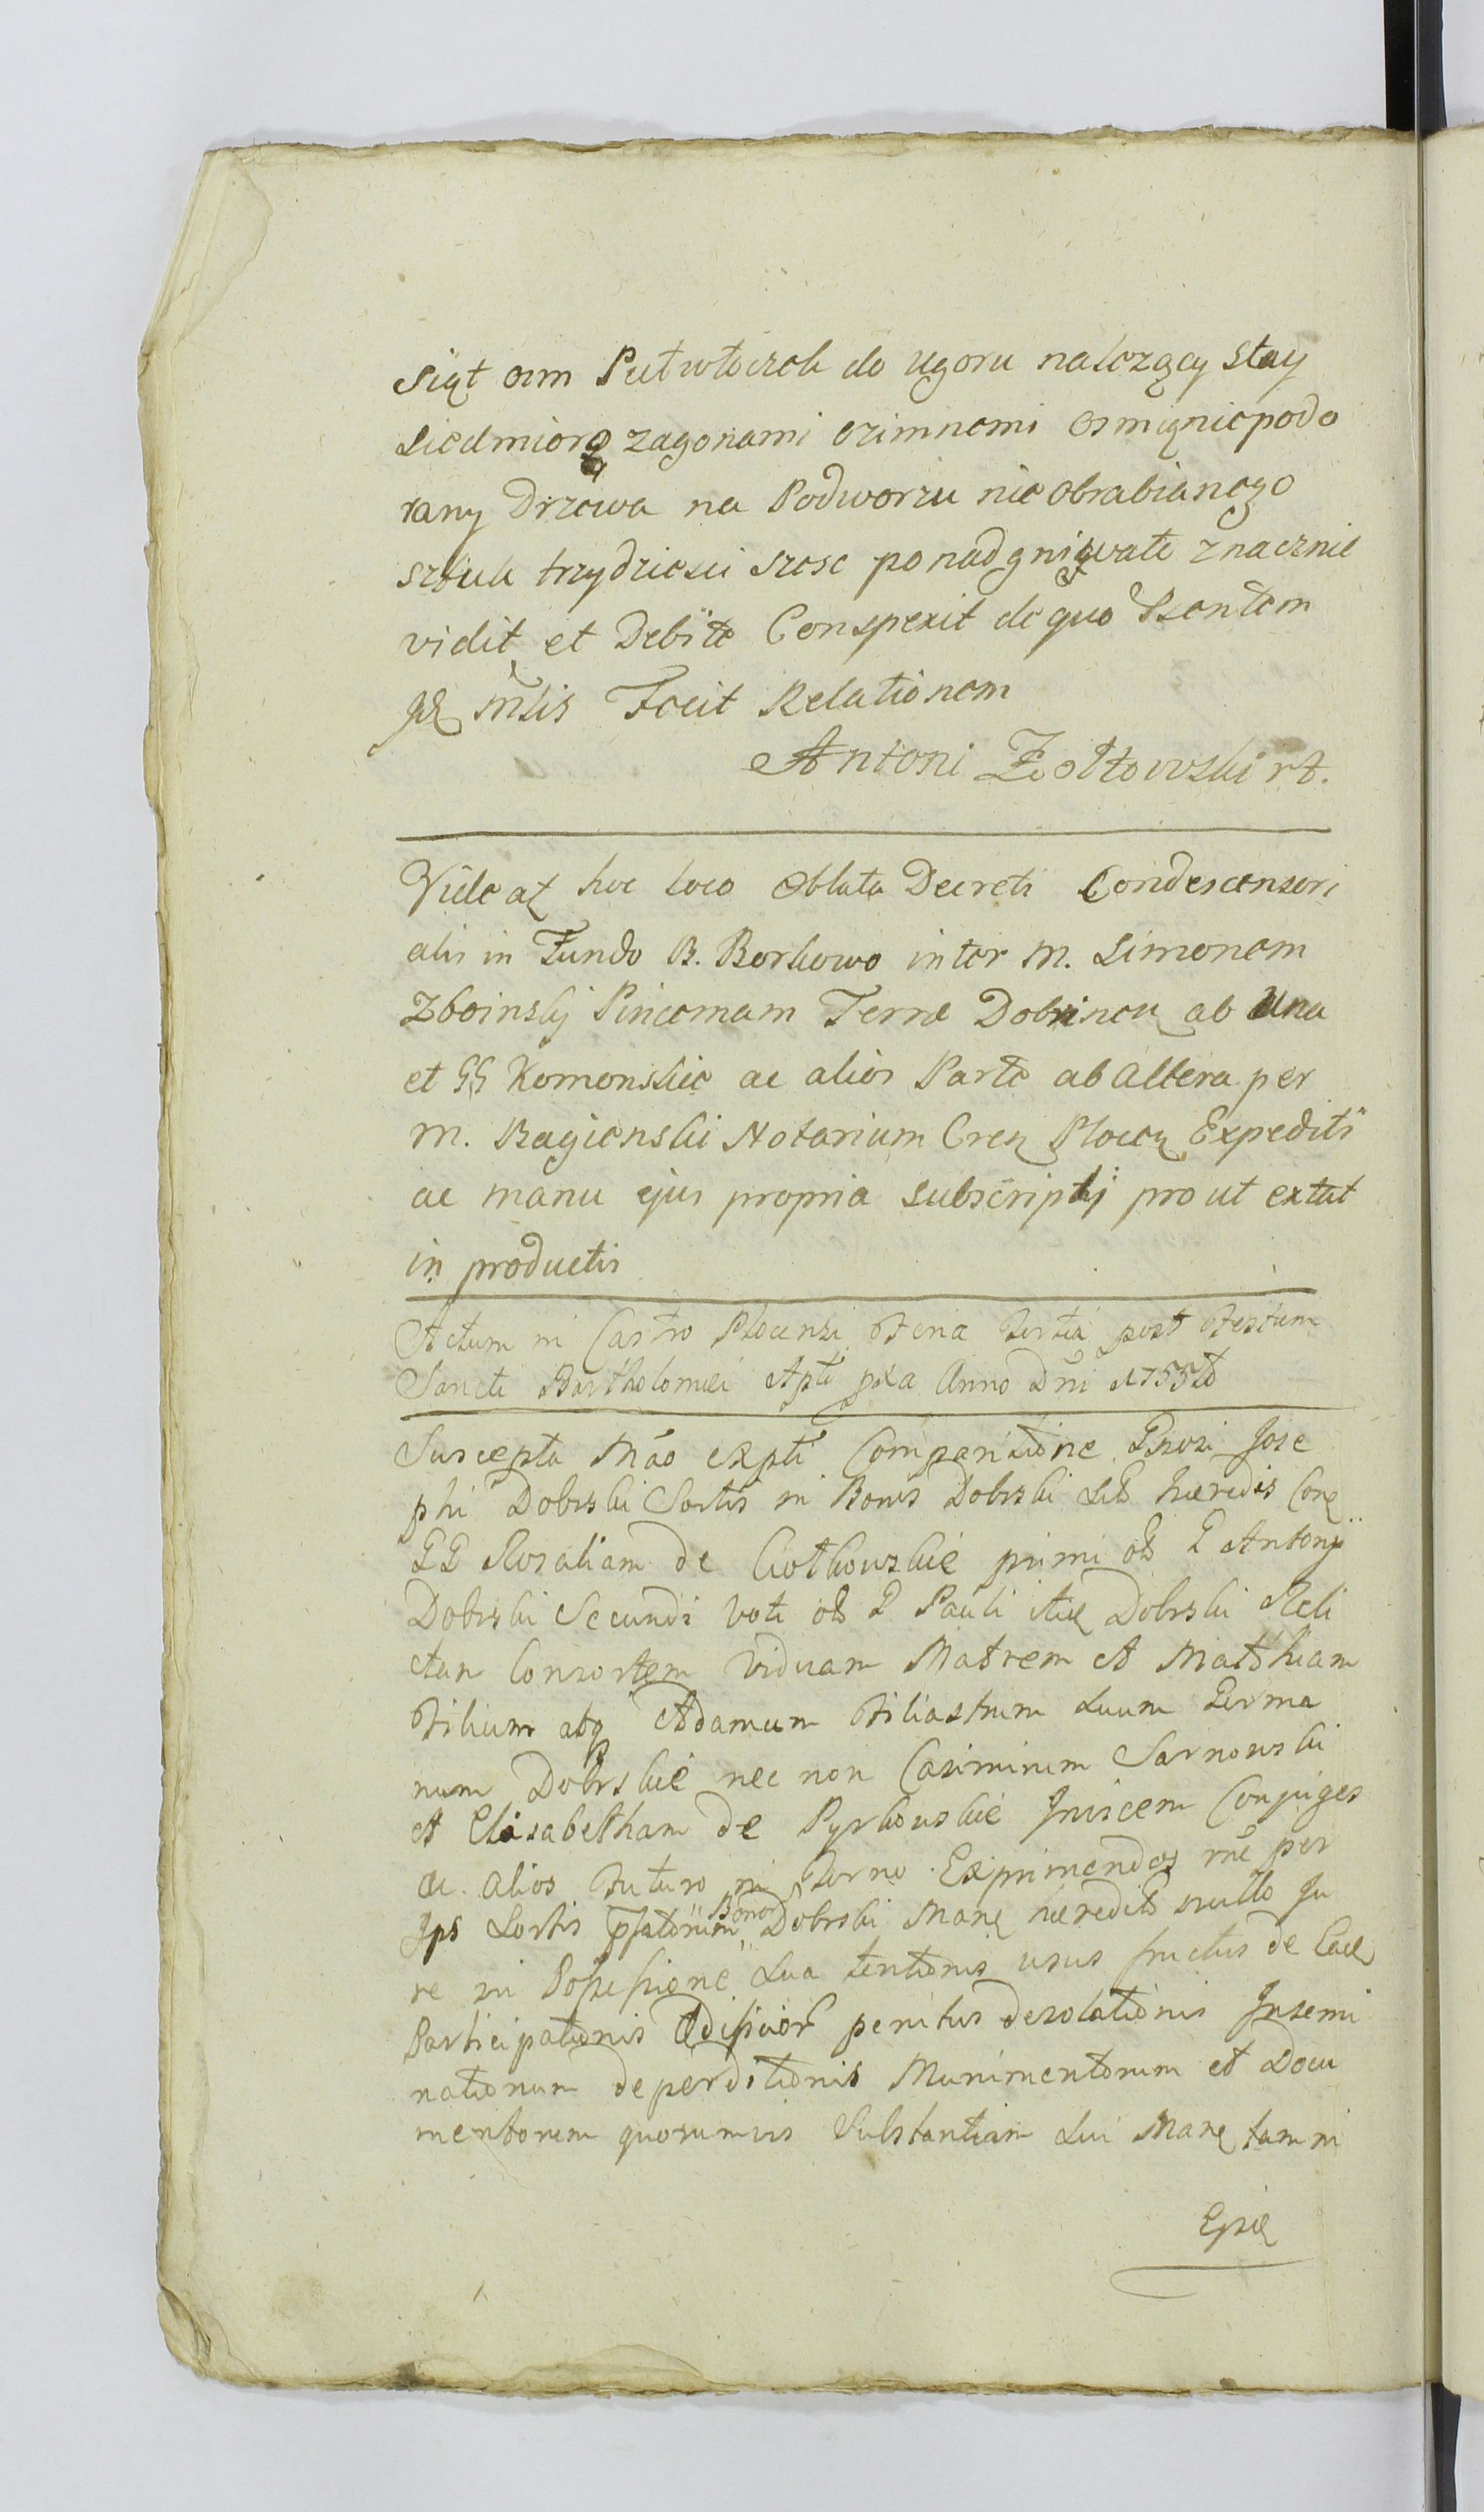 siąt oim Putwłoczek do Ugoru nalezący Stay
siedmiorą zagonami ozimnemi osmią niepodo
rany Drzewa na Podworzu nie obrabianego
sztuk trzydziesci szesc ponadgniwałe znacznie
vidit et Debite Conspexit de quo Psentem
Mlis Fecit Relationem
Antoni Zołtowski rt.
Videat hoc loco oblata Decreti Condescensori
alis in Fundo B. Borkowo inter M. Simonem
Zboinskj Pincernam Terræ Dobrinen ab Una
et GG Komenskie ac alios Parte ab altera per
M. Bagienski Notarium Cren Plocen Expediti
ac manu ejus propria subscriptj pro ut extat
in productis
Actum in Castro Plocensi Feria tertia post Festum
Sancti Bartholomæi Apli pxa Anno Dni 1755to
Suscepta Mão Compartione Gnosi Jose
phi Dobrski Sortis in Bonis Dobrski hæredis Con
GG Rosaliam de Ciołkowskie primi G Antonij
Dobrski Secundi voti G Pauli itię Dobrski Reli
ctan Consortem viduam Matrem et Matthiam
Filium atq Adamum Filiastrum suum Germa
num Dobrskie nec non Casimirum Sarnowski
et Elisabetham de Pyrkowskie Invicem Conjuges
ac alios futuro in Termo Exprimendos rne per
Ips Sortis Bonor Dobrski Mane hæredit nullo Ju
re in Possessione sua tentionis usus fructus de Eade
Participationis Ædificior penitus desolationis Insemi
nationum deperditionis Munimentorum et Docu
mentorum quorumvis Substantiam sui Mane tam in
Epiæ